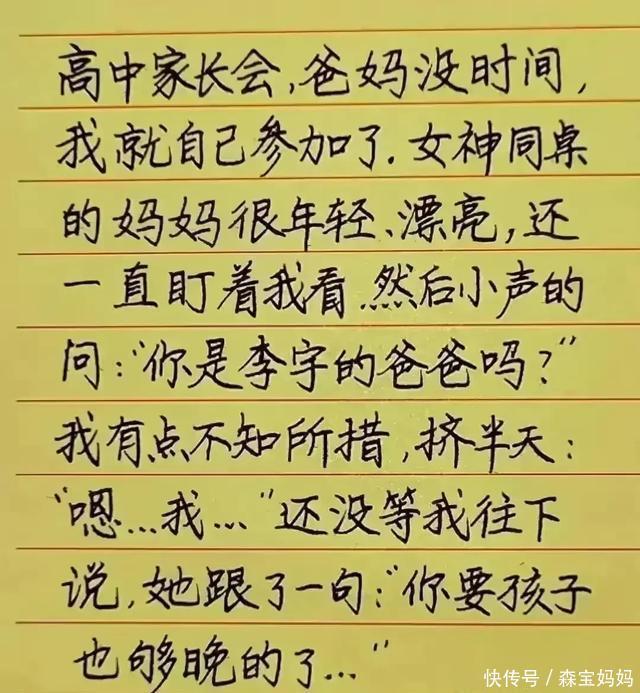 高中家长会,爸妈没时间,
我就自己参加了.女神同桌
的妈妈很年轻、漂亮,还
一直盯着我看.然后小声的
问:“你是李宇的爸爸吗?”
我有点不知所措,挤半天:
“嗯...我...”还没等我往下
说,她跟了一句:“你要孩子
也够晚的了...”
快传号/森宝妈妈